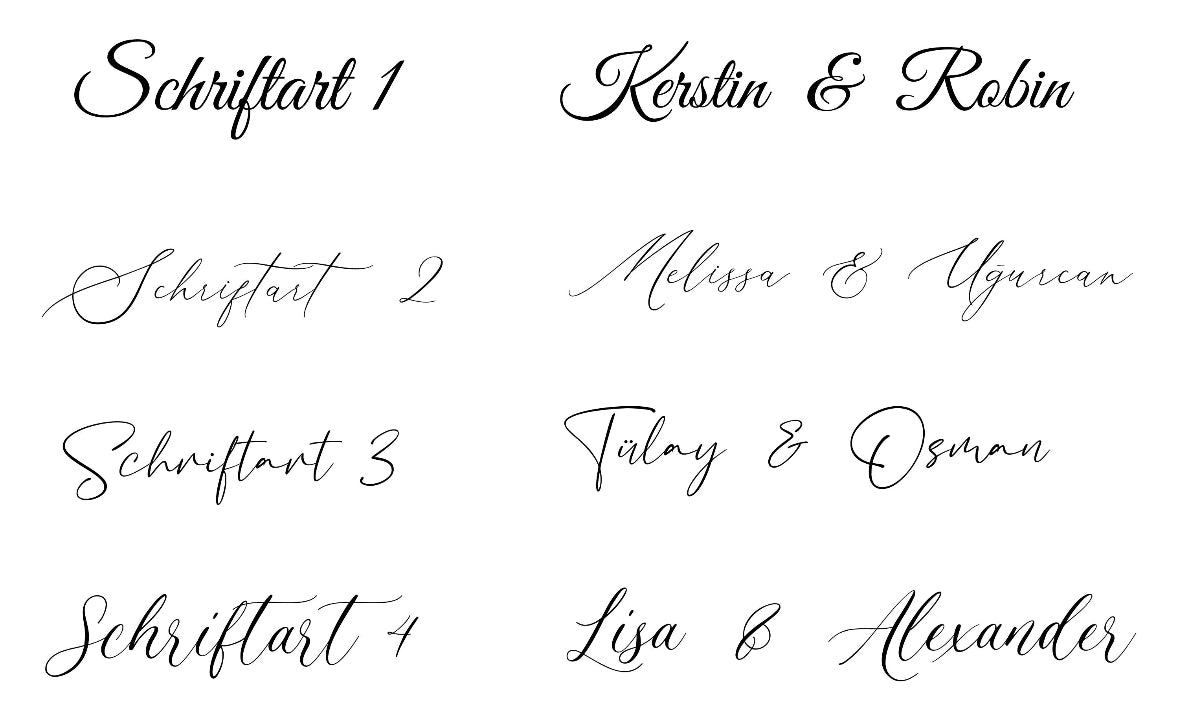 Schriftart 1 Kerstin & Robin
Schriftart 2 Melissa & Uğurcan
Schriftart 3 Tülay & Osman
Schriftart 4 Lisa & Alexander